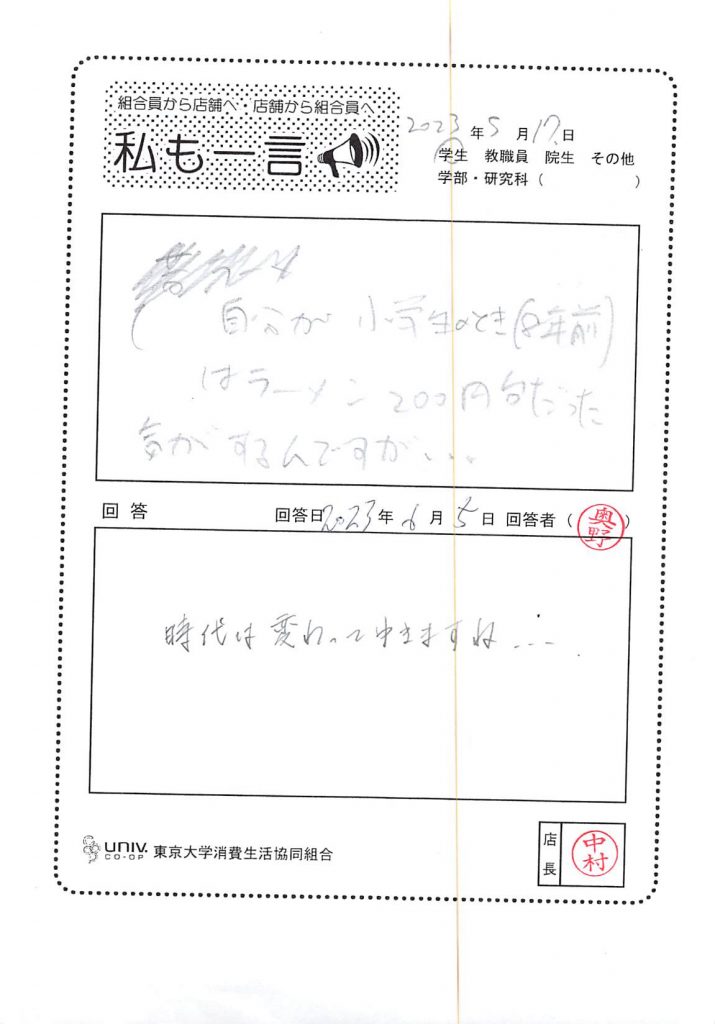 組合員から店舗へ・店舗から組合員へ
私も一言
2023年5月17日
学生 教職員 院生 その他
学部・研究科( )
( 自分が小学生のとき(8年前)
はラーメン200円台だった
気がするんですが...
回答 回答日2023年6月5日 回答者(奥野)
時代は変わってゆきますね......
UNIV.
CO-OP
東京大学消費生活協同組合
店長
中村